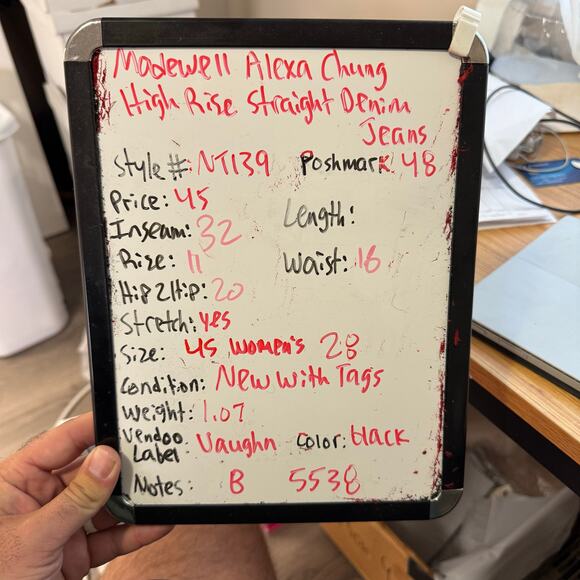 Madewell Alexa Chung
High Rise Straight Denim
Jeans
Style #: NT139 Poshmark 48
Price: 45
Inseam: 32 Length:
Rise: 11 Waist: 16
Hip 2 Hip: 20
Stretch: yes
Size: US Women's 28
Condition: New With Tags
Weight: 1.07
Vendoo
Label: Vaughn Color: black
Notes: B 5538